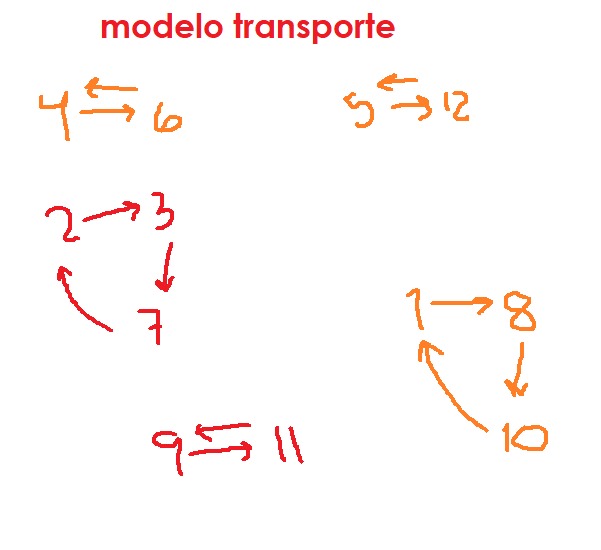 modelo transporte
4 6
5 12
2 3
7
1 8
10
9 11